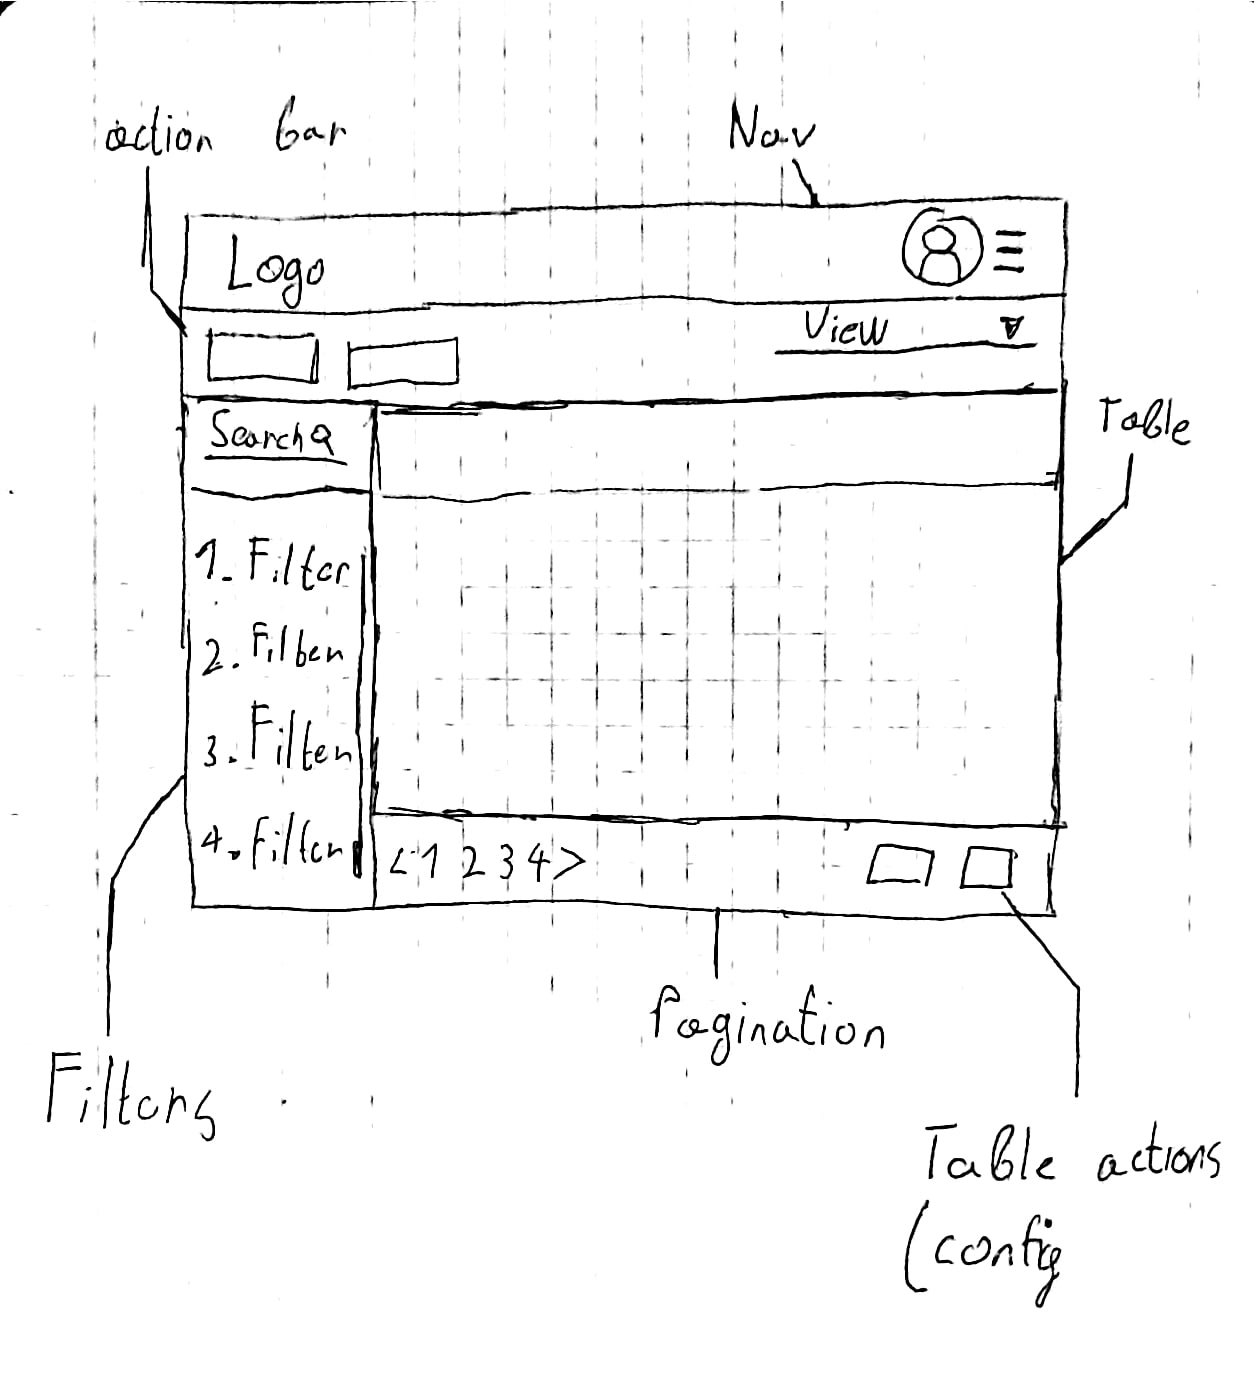 action bar
Nav
Logo
View
Search
Table
1. Filter
2. Filter
3. Filter
4. Filter
< 1 2 3 4 >
Pagination
Filters
Table actions
(config